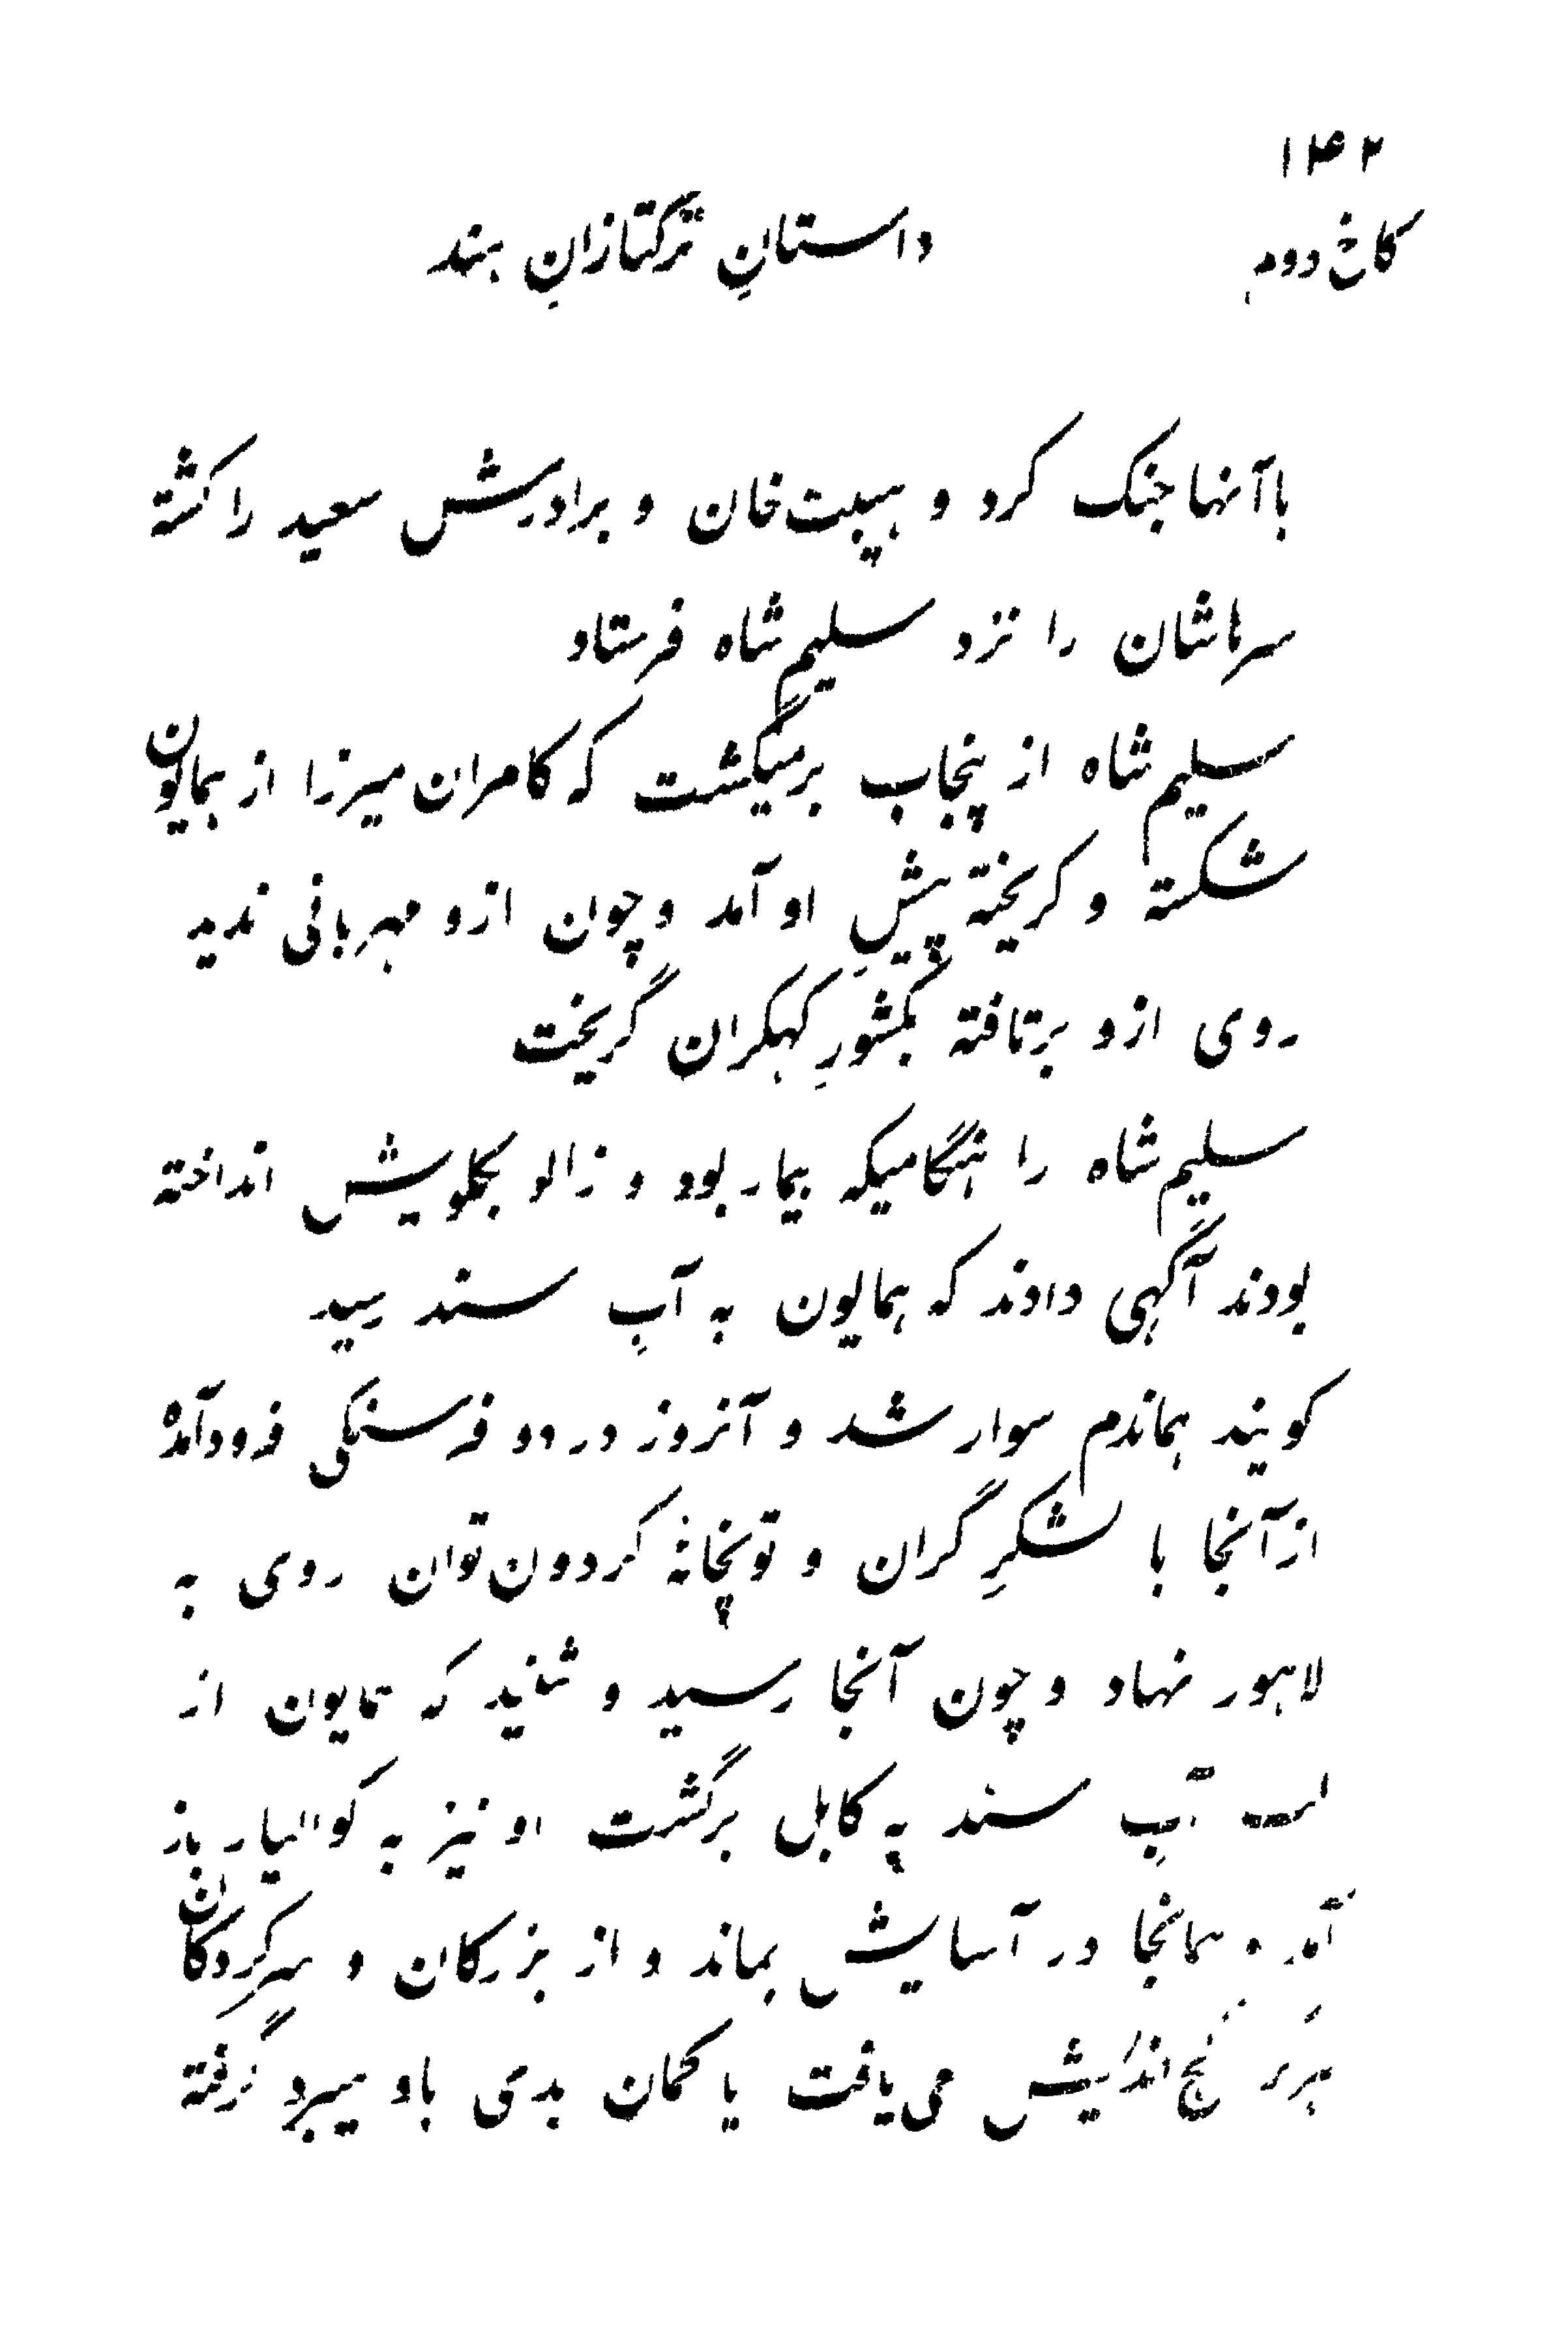 ۱۴۲
کاخ دوم داستانِ ترکتازانِ هند
باآنها جنک کرد و هیبت‌خان و برادرش سعید را کشته
سرهاشان را نزد سلیم‌شاه فرستاد
سلیم‌شاه از پنجاب برمیگشت که کامران میرزا از همایون
شکسته و کریخته پیشِ او آمد و چون ازو مهربانی ندید
روی ازو برتافته بکشورِ کهکران گریخت
سلیم‌شاه را هنگامیکه بیمار بود و زالو بگلویش انداخته
بودند آگهی دادند که همایون به آبِ سند رسید
کویند هماندم سوار شد و آنروز در دو فرسنکی فرودآمده
ازآنجا با لشکرِ گران و توپخانهٔ کردون‌توان روی به
لاهور نهاد و چون آنجا رسید و شنید که همایون از
لب آبِ سند به کابل برگشت او نیز به کوالیار باز
آمد و همانجا در آسایش بماند و از بزرکان و سرکردکان
هرکرا کج‌اندیش می‌یافت یا کمان بدی باو میبرد گرفته